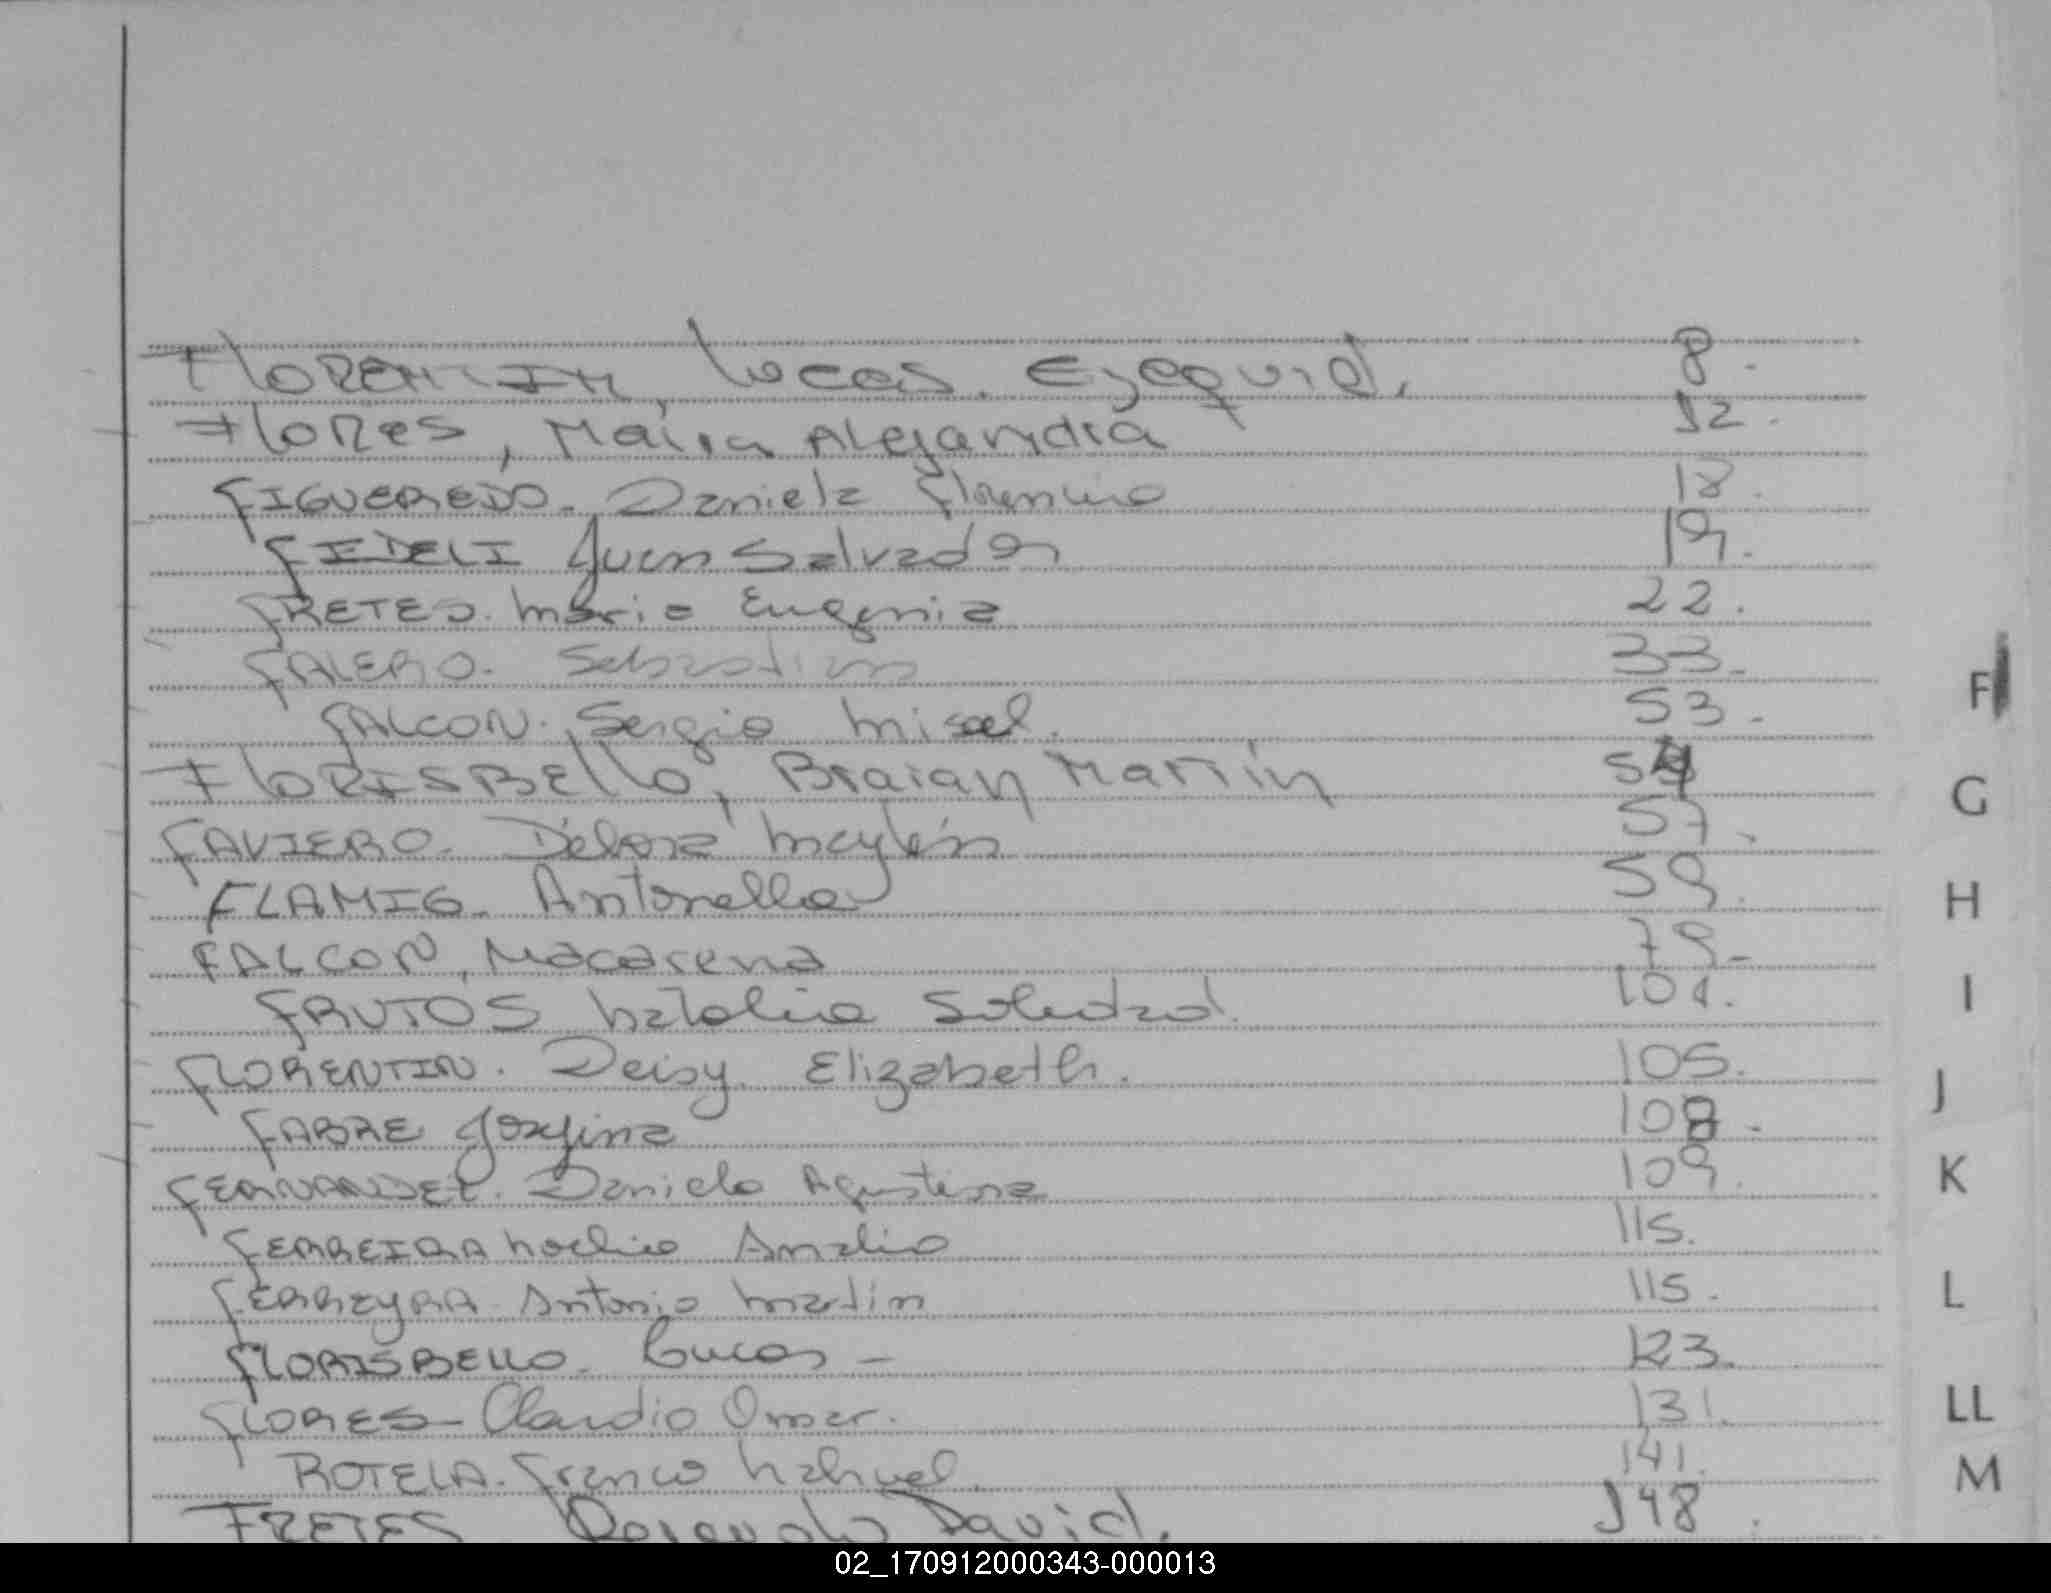 FLORENTIN, Lucas. Ezequiel. 8.
Flores, Maira Alejandra 12.
FIGUEREDO. Daniela Florencia 18.
FIDELI Juan Salvador 19.
FRETES. Maria Eugenia 22.
FALERO. Sebastian 33.
FALCON. Sergio Misael. 53.
FLORISBEllo, Braian Martín 54
FAVIERO. Débora Maylén 57.
FLAMIG. Antonella 59.
FALCON, Macarena 79.
FRUTOS Natalia Soledad. 101.
FLORENTIN. Deisy Elizabeth. 105.
FABRE Josefina 108.
FERNANDEZ. Daniela Agustina 109.
FERREIRA Noelia Analia 115.
FERREYRA Antonio Martin 115.
FLORISBELLO. Lucas - 123.
FLORES - Claudio Omar. 131.
ROTELA. Franco Nahuel. 141.
FRETES Rosendo David. 148.
F
G
H
I
J
K
L
LL
M
02_170912000343-000013